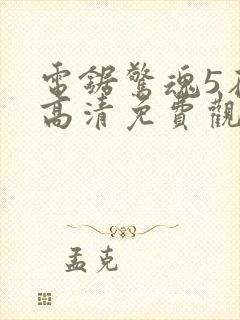 電鋸驚魂5
高清免費觀
孟克